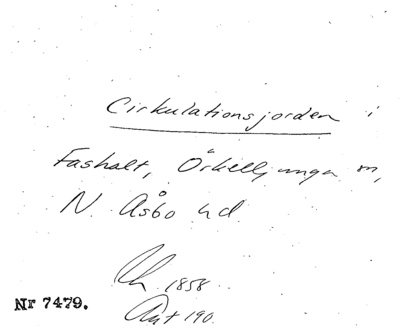 Cirkulationsjorden i
Fashalt, Örkelljunga sn,
N. Åsbo hd.
Lh. 1858
Akt 190.
Nr 7479.